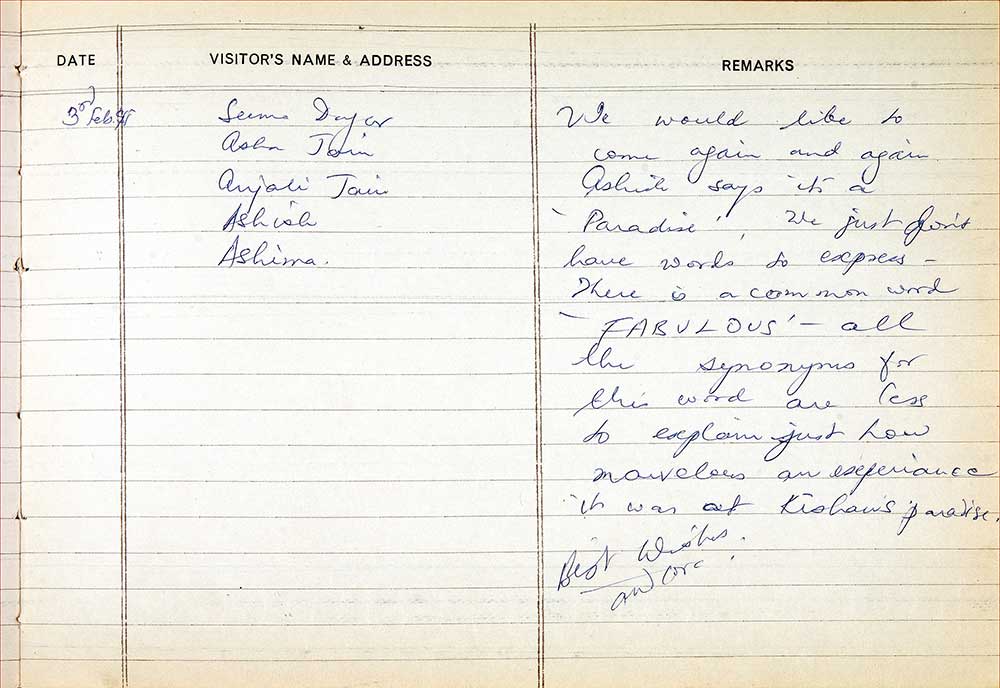 DATE
VISITOR'S NAME & ADDRESS
REMARKS
3rd Feb. 91
Seema Dayar
Asha Jain
Anjali Jain
Ashish
Ashima.
We would like to
come again and again
Ashish says it's a
'Paradise', We just don't
have words to express -
There is a common word
'FABULOUS' - all
the synonyms for
this word are less
to explain just how
marvelous an experiance
it was at Kishan's paradise.
Best Wishes.
and love